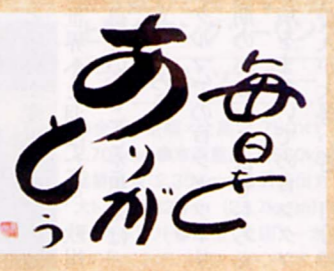 毎日を
ありが
とう